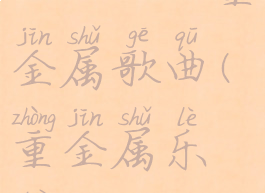 jīn shǔ gē qū
金属歌曲(
zhòng jīn shǔ lè
重金属乐